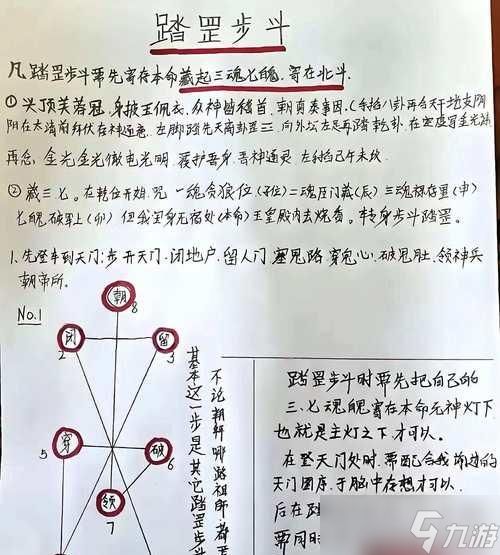 踏罡步斗
凡踏罡步斗要先寄存本命藏起三魂七魄,寄在北斗.
①头顶芙蓉冠,身披玉佩衣,众神皆稽首,朝真奏事因.(左掐八卦再合天干地支阴
阳在太清前存伏在神通处.左脚踏先天离卦是三 向外
再念,金光金光傲电光明,覆护吾身,吾神通灵 左掐己午未坟.
②藏三七。在乾位开始.咒一魂贪狼位(子位)二魂巨门藏(辰)三魂禄存里(申)
七魄破军上(卯)但我里身无宿处(本命)玉皇殿内去烧香。转身步斗踏罡。
1.先登本到天门;步开天门.闭地户,留人门 塞鬼路 穿鬼心,破鬼肚.领神兵
朝帝所.
No.1
朝
8
闭
2
留
3
穿
5
破
6
领
7
不论朝拜哪路祖师.都
基本这一步是其它踏罡步
踏罡步斗时要先把自己的
三、七魂魄寄在本命元神灯下
也就是主灯之下才可以。
在登天门处时.要配合我前边的
天门图序.于脑中存想才可以.
后在
要同时
九游